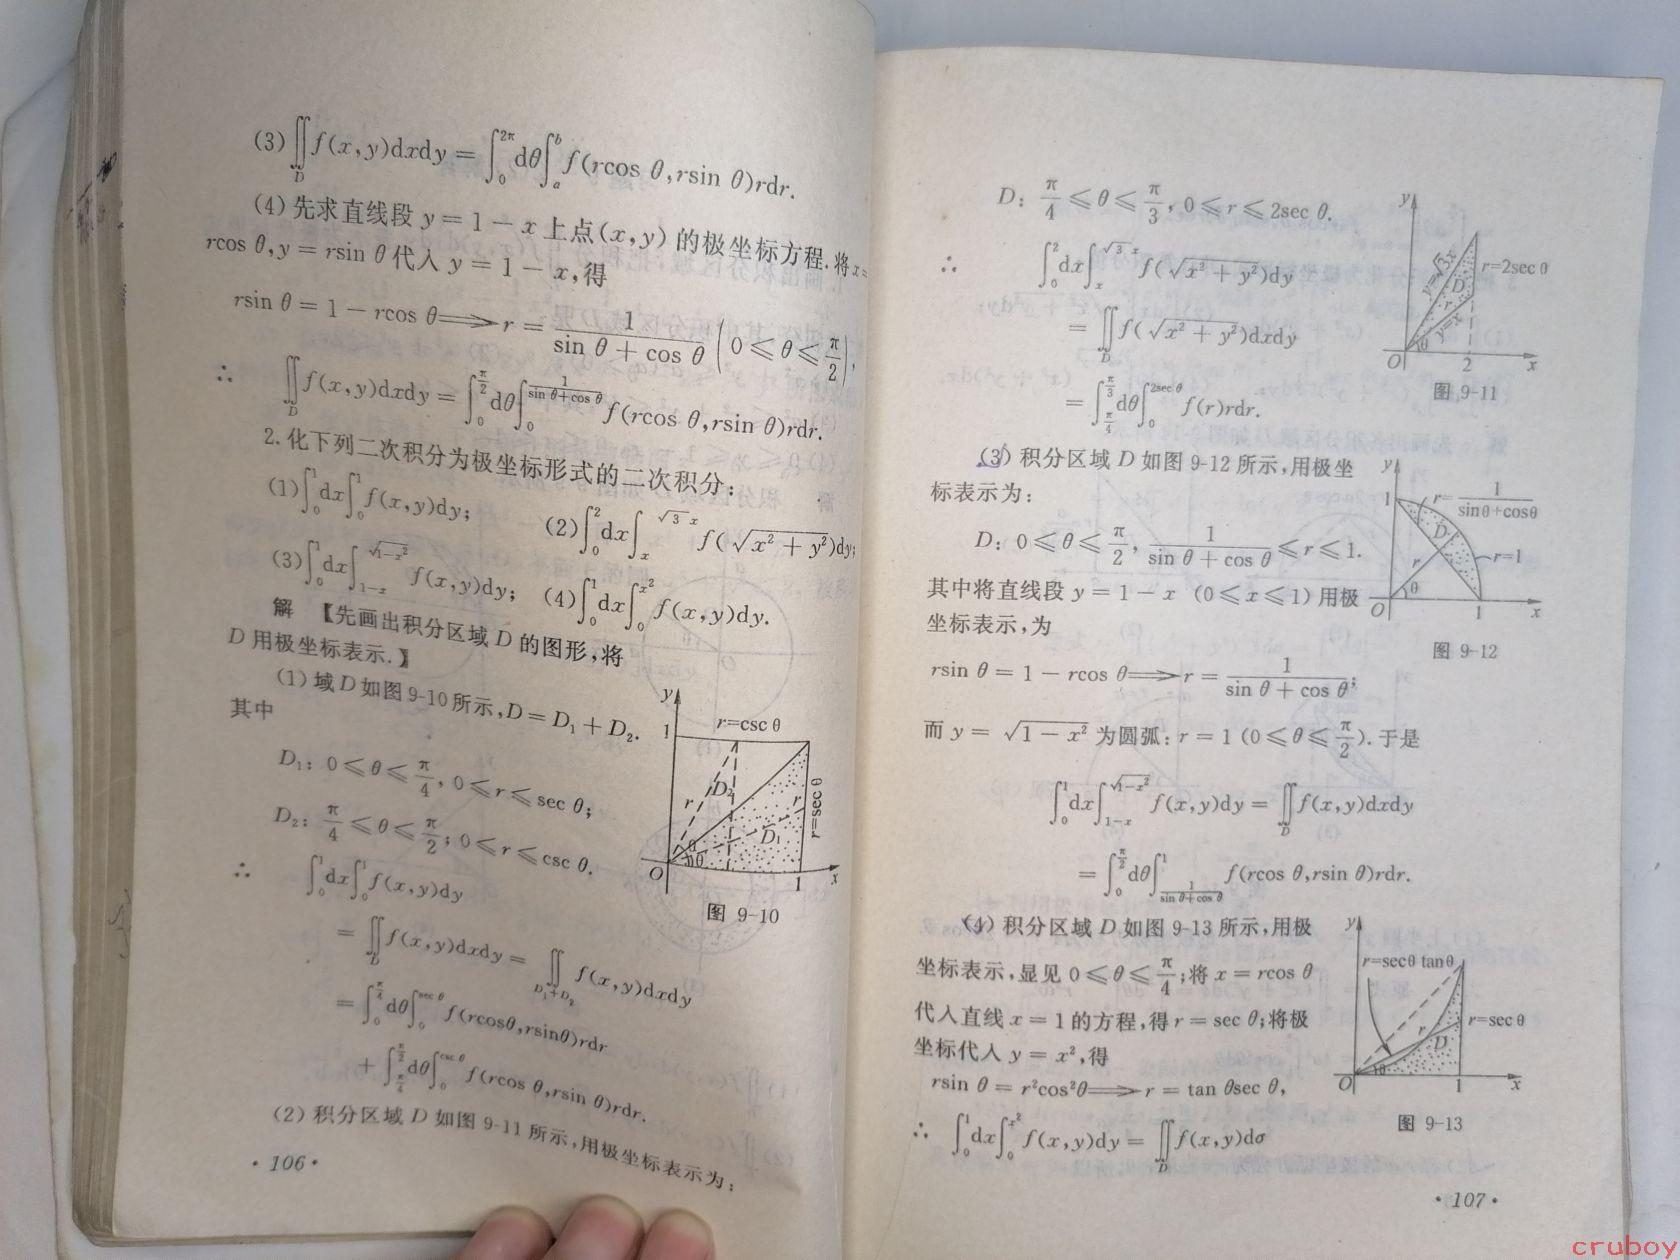 (3) ∬_D f(x,y)dxdy = ∫_0^{2π} dθ ∫_a^b f(rcos θ,rsin θ)rdr.
(4) 先求直线段 y = 1 − x 上点(x,y) 的极坐标方程.将 x =
rcos θ,y = rsin θ 代入 y = 1 − x,得
rsin θ = 1 − rcos θ ⟹ r = 1/(sin θ + cos θ) (0 ⩽ θ ⩽ π/2),
∴ ∬_D f(x,y)dxdy = ∫_0^{π/2} dθ ∫_0^{1/(sin θ+cos θ)} f(rcos θ,rsin θ)rdr.
2. 化下列二次积分为极坐标形式的二次积分:
(1) ∫_0^1 dx ∫_0^1 f(x,y)dy; (2) ∫_0^2 dx ∫_x^{√3 x} f(√(x² + y²))dy;
(3) ∫_0^1 dx ∫_{1−x}^{√(1−x²)} f(x,y)dy; (4) ∫_0^1 dx ∫_0^{x²} f(x,y)dy.
解 【先画出积分区域 D 的图形,将
D 用极坐标表示.】
(1) 域 D 如图 9-10 所示,D = D₁ + D₂.
其中
D₁: 0 ⩽ θ ⩽ π/4, 0 ⩽ r ⩽ sec θ;
D₂: π/4 ⩽ θ ⩽ π/2; 0 ⩽ r ⩽ csc θ.
∴ ∫_0^1 dx ∫_0^1 f(x,y)dy
= ∬_D f(x,y)dxdy = ∬_{D₁+D₂} f(x,y)dxdy
= ∫_0^{π/4} dθ ∫_0^{sec θ} f(rcosθ,rsinθ)rdr
+ ∫_{π/4}^{π/2} dθ ∫_0^{csc θ} f(rcos θ,rsin θ)rdr.
y
1
r=csc θ
D₂
r
r
r=sec θ
D₁
θ
θ
O
1
x
图 9-10
(2) 积分区域 D 如图 9-11 所示,用极坐标表示为:
· 106 ·
D: π/4 ⩽ θ ⩽ π/3, 0 ⩽ r ⩽ 2sec θ.
∴ ∫_0^2 dx ∫_x^{√3 x} f(√(x² + y²))dy
= ∬_D f(√(x² + y²))dxdy
= ∫_{π/4}^{π/3} dθ ∫_0^{2sec θ} f(r)rdr.
y
y=√3x
r=2sec θ
D
r
y=x
θ
O
2
x
图 9-11
(3) 积分区域 D 如图 9-12 所示,用极坐
标表示为:
D: 0 ⩽ θ ⩽ π/2, 1/(sin θ + cos θ) ⩽ r ⩽ 1.
其中将直线段 y = 1 − x (0 ⩽ x ⩽ 1) 用极
坐标表示,为
rsin θ = 1 − rcos θ ⟹ r = 1/(sin θ + cos θ);
y
1
r=1/(sinθ+cosθ)
D
r
r=1
θ
O
1
x
图 9-12
而 y = √(1 − x²) 为圆弧: r = 1 (0 ⩽ θ ⩽ π/2). 于是
∫_0^1 dx ∫_{1−x}^{√(1−x²)} f(x,y)dy = ∬_D f(x,y)dxdy
= ∫_0^{π/2} dθ ∫_{1/(sin θ+cos θ)}^1 f(rcos θ,rsin θ)rdr.
(4) 积分区域 D 如图 9-13 所示,用极
坐标表示,显见 0 ⩽ θ ⩽ π/4;将 x = rcos θ
代入直线 x = 1 的方程,得 r = sec θ;将极
坐标代入 y = x²,得
rsin θ = r²cos²θ ⟹ r = tan θsec θ,
∴ ∫_0^1 dx ∫_0^{x²} f(x,y)dy = ∬_D f(x,y)dσ
y
r=secθ tanθ
r
r=sec θ
D
θ
O
1
x
图 9-13
· 107 ·
cruboy